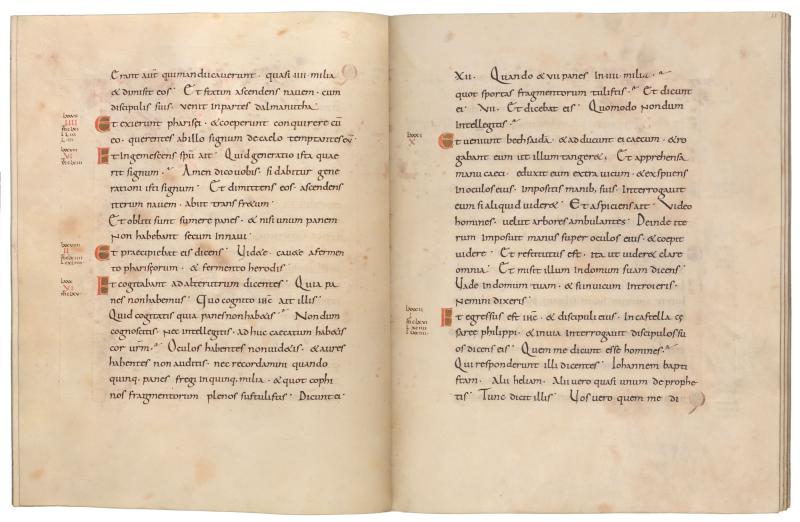 Erant aut̄ qui manducaverunt · quasi IIII · milia
& dimisit eos · Et statim ascendens navem · cum
discipulis suis · venit in partes dalmanutha ·
Et exierunt pharisęi · & coeperunt conquirere cū
eo · querentes ab illo signum de caelo temptantes eū ·
Et ingemescens spū ait · Quid generatio ista quae
rit signum · Amen dico vobis · si dabitur gene
rationi isti signum · Et dimittens eos · ascendens
iterum navem · abiit trans fr&um ·
Et obliti sunt sumere panes · & nisi unum panem
non habebant secum in navi ·
Et praecipiebat eis dicens · Vid&e · cav&e a fermen
to pharisęorum · & fermento herodis ·
Et cogitabant ad alterutrum dicentes · Quia pa
nes non habemus · Quo cognito ihc̄ ait illis ·
Quid cogitatis quia panes non hab&is · Nondum
cognoscitis nec intellegitis · ad huc caecatum hab&is
cor vr̄m · Oculos habentes non vid&is · & aures
habentes non auditis · nec recordamini quando
quinq · panes fregi in quinq · milia · & quot cophi
nos fragmentorum plenos sustulistis · Dicunt ei ·
XII · Quando & VII panes in · IIII · milia ·
quot sportas fragmentorum tulistis · Et dicunt
ei · VII · Et dicebat eis · Quomodo nondum
intellegitis ·
Et veniunt bethsaida · & adducunt ei caecum · & ro
gabant eum ut illum tanger& · Et apprehensa
manu caeci · eduxit eum extra vicum · & expuens
in oculos eius · impositis manib; suis · Interrogavit
eum si aliquid vider& · Et aspiciens ait · Video
homines · velut arbores ambulantes · Deinde ite
rum imposuit manus super oculos eius · & coepit
videre · Et restitutus est · ita ut vider& clare
omnia · Et misit illum in domum suam dicens ·
Vade in domum tuam · & si in vicum introieris ·
Nemini dixeris ·
Et egressus est ihc̄ · & discipuli eius · in castella cę
saręe philippi · & in via interrogavit discipulos su
os dicens eis · Quem me dicunt esse homines ·
Qui responderunt illi dicentes · Iohannem bapti
stam · Alii heliam · Alii vero quasi unum de prophe
tis · Tunc dicit illis · Vos vero quem me di